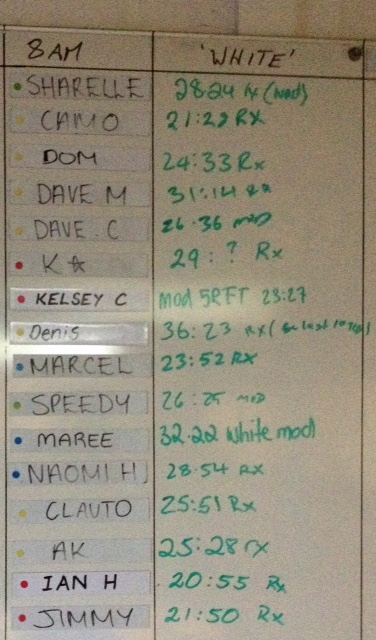 8 AM 'WHITE'
SHARELLE 28:24 rx (mod)
CAMO 21:22 RX
DOM 24:33 Rx
DAVE M 31:14 RX
DAVE . C 26:36 mod
K☆ 29 : ? Rx
KELSEY C mod 5RFT 23:27
Denis 36:23 RX (
MARCEL 23:52 RX
SPEEDY 26:25 MOD
MAREE 32:22 White mod
NAOMI H 28:54 RX
CLAUTO 25:51 Rx
AK 25:28 rx
IAN H 20:55 Rx
JIMMY 21:50 Rx